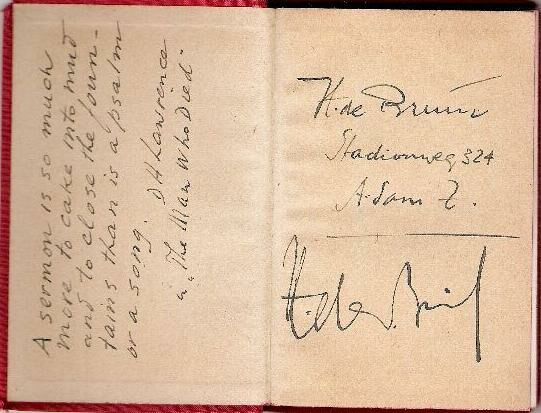 A sermon is so much
more to cake into mud
and to close the foun-
tains than is a psalm
or a song. DH Lawrence
in „The Man Who Died"
H. de Bruin
Stadionweg 324
A'dam Z.